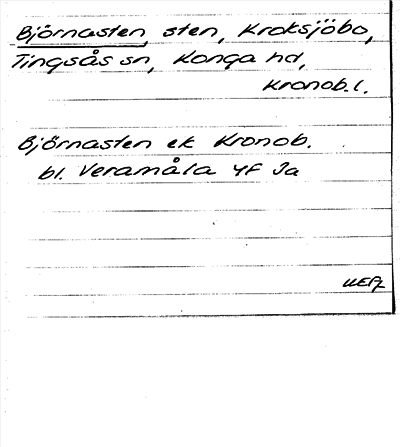 Björnasten, sten, Kroksjöbo,
Tingsås sn, Konga hd,
Kronob. l.
Björnasten ek Kronob.
bl. Veramåla 4F Ja